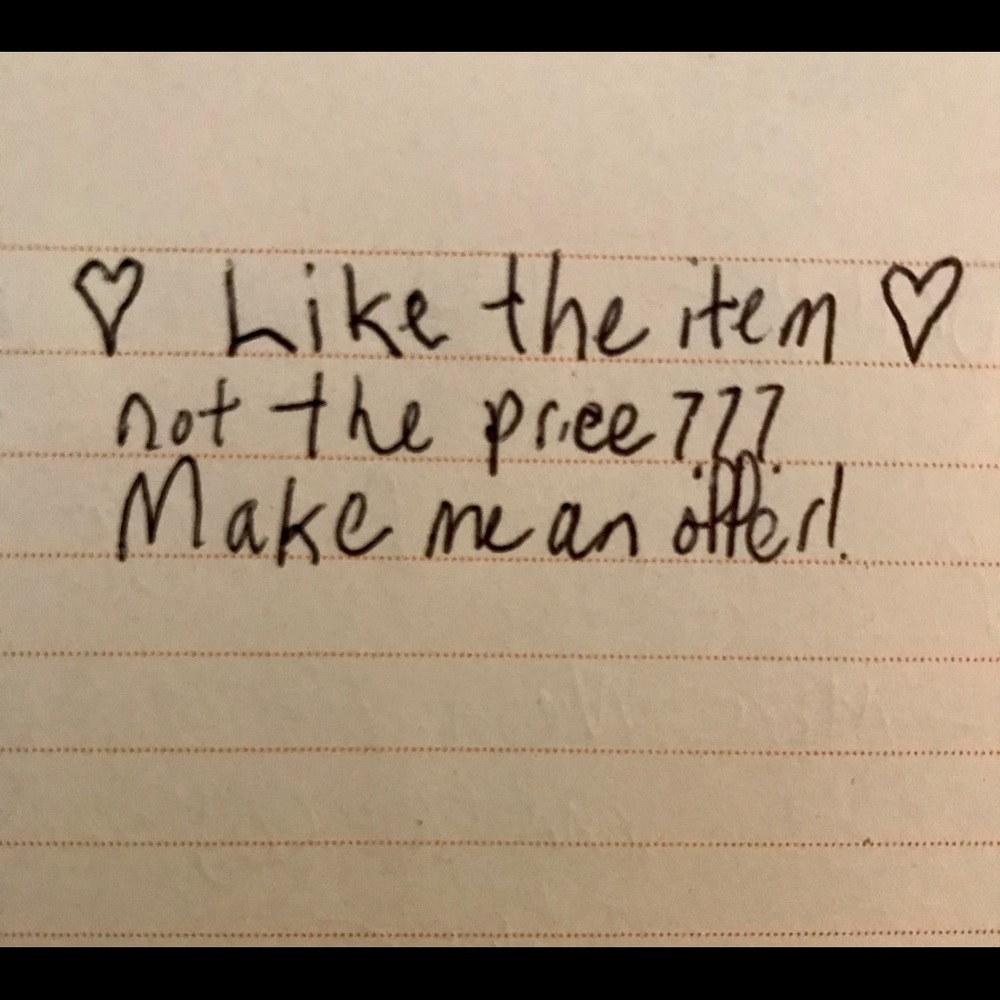 ♡ Like the item ♡
not the price???
Make me an offer!